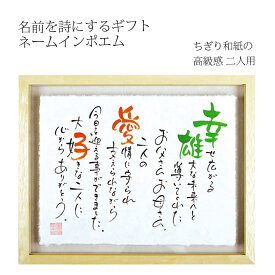 名前を詩にするギフト
ネームインポエム
ちぎり和紙の
高級感 二人用
幸せ広がる
雄大な未来へと
導いてくれた
お父さんお母さん
二人の
愛情に守られ
支えられながら
今日を迎える事ができました
大好きな二人に
心からありがとう